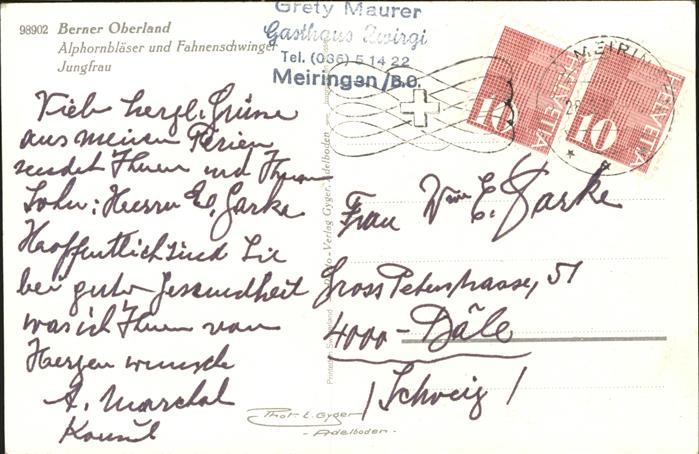 98902 Berner Oberland
Alphornbläser und Fahnenschwinger
Jungfrau
Grety Maurer
Gasthaus Zwirgi
Tel. (036) 5 14 22
Meiringen/B.O.
MEIRIN
HELVETIA
10
HELVETIA
10
Viele herzl. Grüsse
aus meinen Ferien
sendet Ihnen und Ihrem
Sohn: Herrn
Hoffentlich sind Sie
bei guter Gesundheit
was ich Ihnen von
Herzen wünsche
A. Marchal
Konsul
Frau Wwe E. Garke
Gross Peterstrasse, 51
4000 - Bâle
(Schweiz)
Verlag Gyger, Adelboden
Printed in Switzerland
Phot. E. Gyger
- Adelboden -